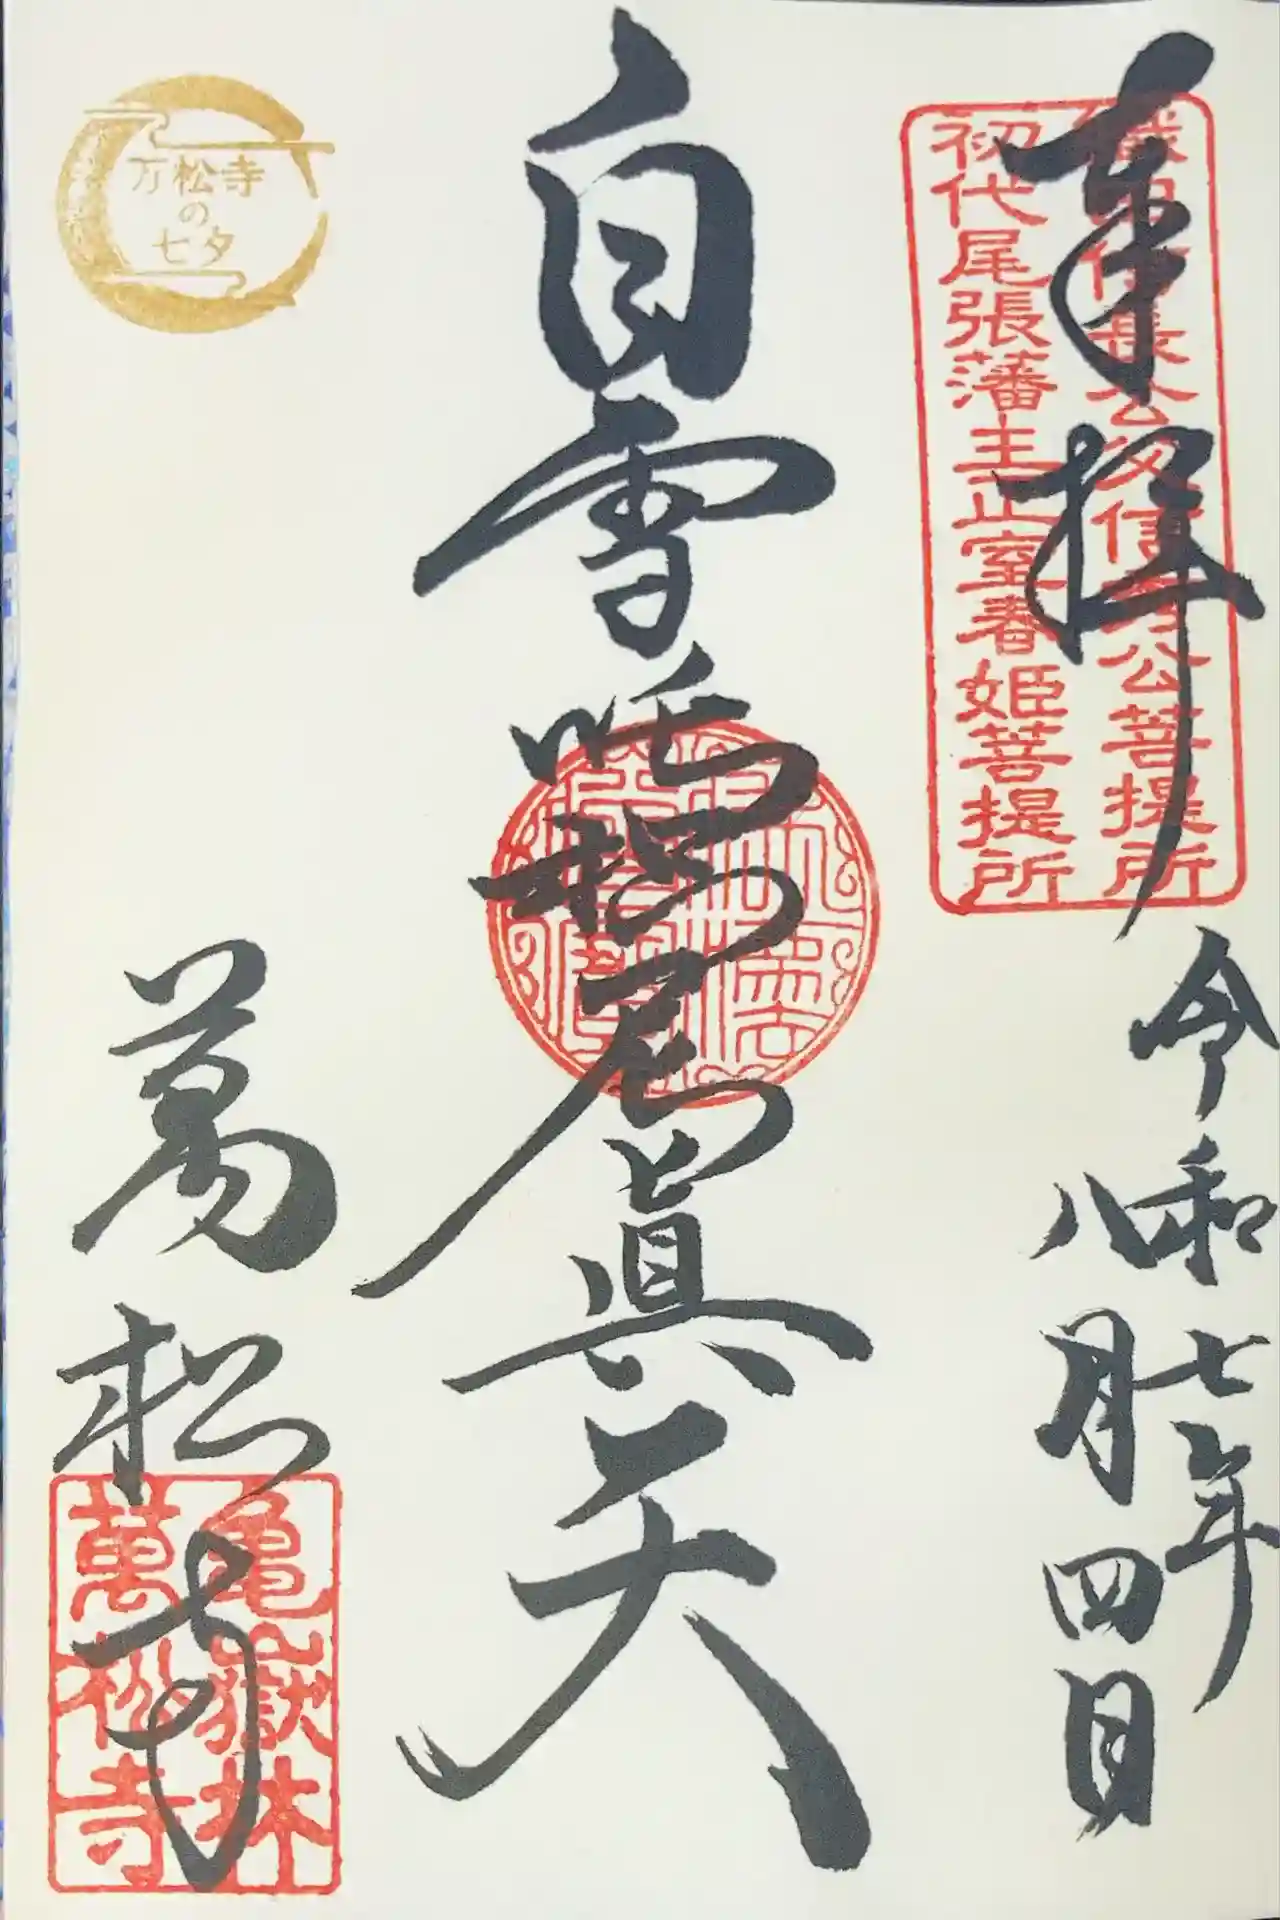 奉拝
織田信長公父信秀公菩提所
初代尾張藩主正室春姫菩提所
令和七年
八月四日
白雪吒枳尼眞天
万松寺
の
七夕
萬松寺
亀嶽林
萬松寺